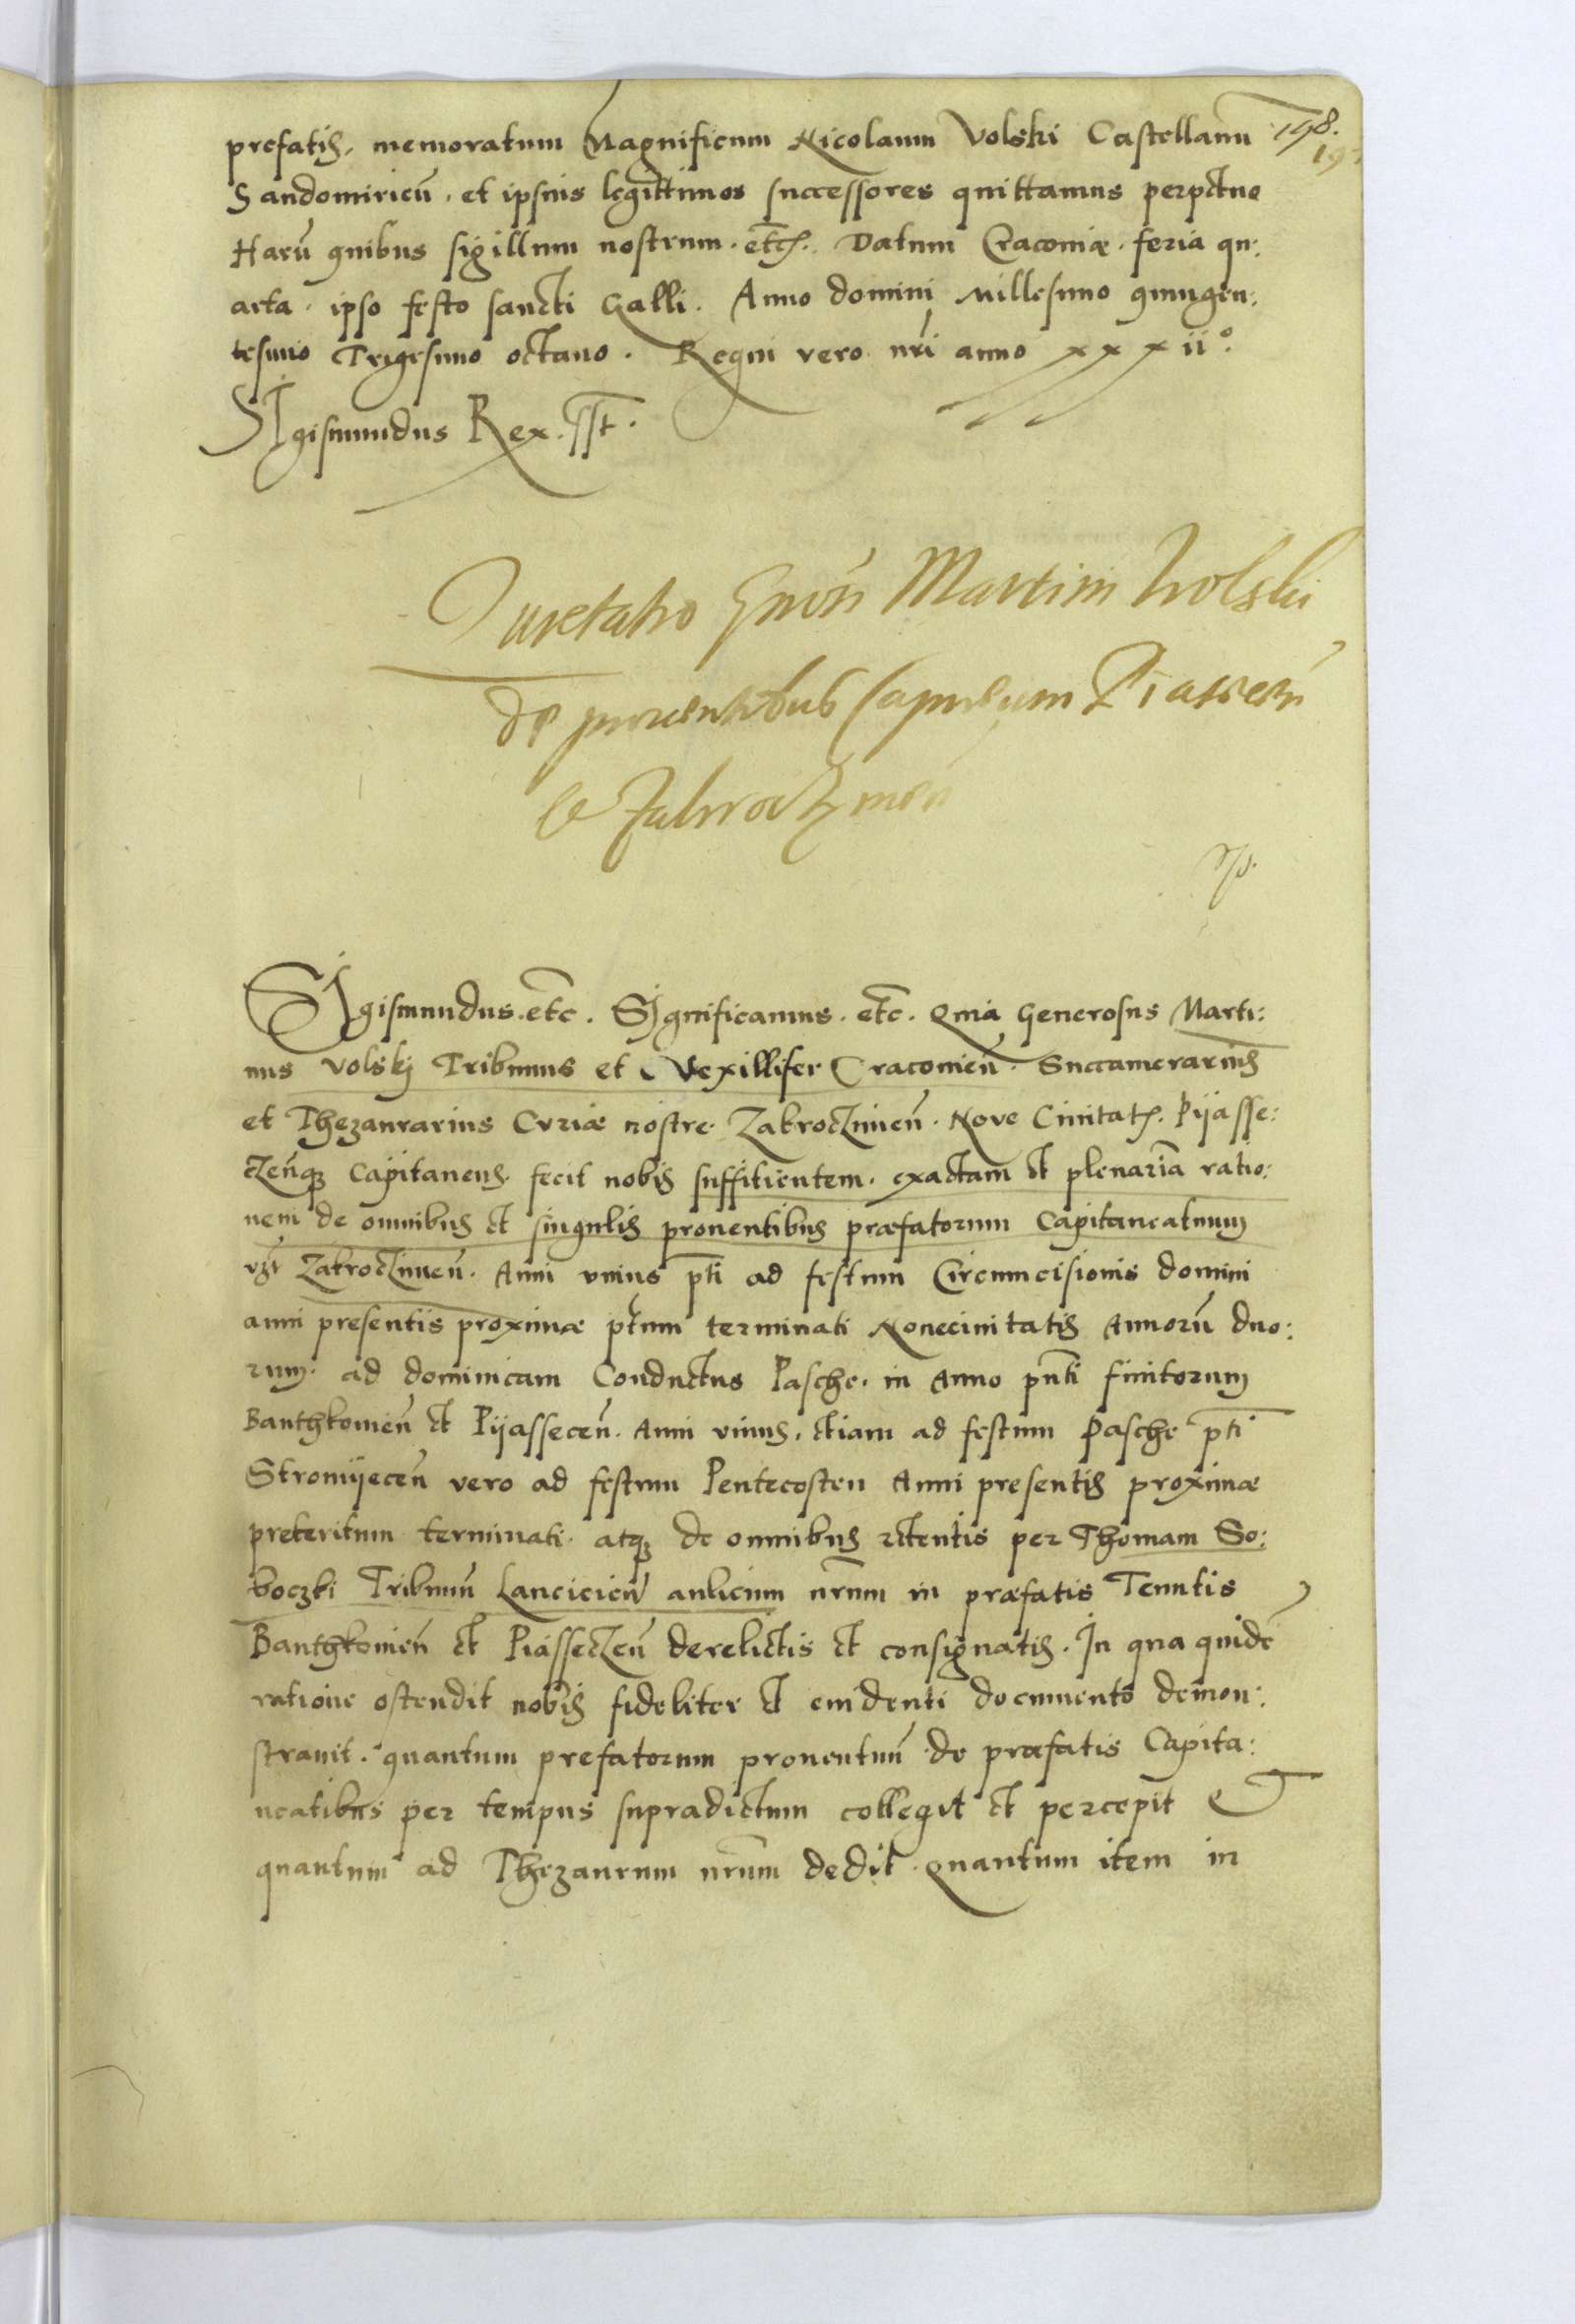 prefatis, memoratum Magnificum Nicolaum Volski Castellanū 198.
Sandomirien̄. et ipsius legittimos successores quittamus perpetuo
Harū quibus sigillum nostrum. etc. Datum Cracoviæ. feria qu:
arta. ipso festo sancti Galli. Anno domini Millesimo quingen:
tesimo Trigesimo octavo. Regni vero nr̄i anno xxxii°.
Sigismundus Rex. sst.
Quietatio Gn̄osi Martini Wolski
de proventibus Piassecen̄
et Zakroczimen̄
Sigismundus. etc. Significamus. etc. Quia Generosus Marti:
nus Volskj Tribunus et Vexillifer Cracovien̄. Succamerarius
et Thezaurarius Curiæ nostre. Zakroczimen̄. Nove Civitatis. Pijasse:
czen̄q; Capitaneus. fecit nobis suffitientem. exactam et plenariā ratio:
nem de omnibus et singulis proventibus præfatorum Capitaneatuum
vz̄t Zakroczimen̄. Anni unius pt̄i ad festum Circumcisionis domini
anni presentis proximæ pt̄um terminati Novecivitatis Annorū duo:
rum. ad dominicam Conductus Pasche. in Anno pn̄ti finitorum
Banthkovien̄ et Pijassecen̄. Anni unius. etiam ad festum Pasche pt̄i
Stromijecen̄ vero ad festum Pentecosten Anni presentis proximæ
preteritum terminati. atq; de omnibus retentis per Thomam So:
boczki Tribunū Lancicien̄ aulicum nr̄um in præfatis Tenutis
Banthkovien̄ et Piasseczen̄ derelictis et consignatis. In qua quidē
ratione ostendit nobis fideliter et evidenti documento demon:
stravit. quantum prefatorum proventuū de præfatis Capita:
neatibus per tempus supradictum collegit et percepit Et
quantum ad Thezaurum nr̄um dedit. quantum item in